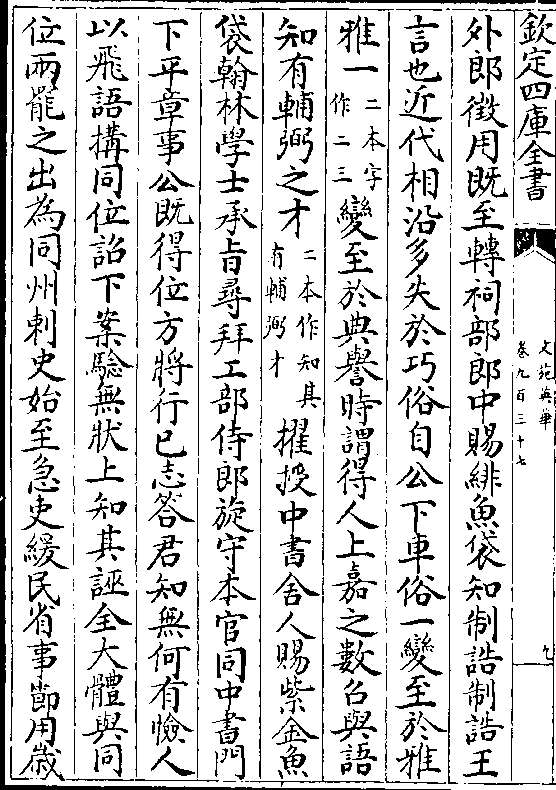 欽定四庫全書
文苑英華
卷九百三十七
九
外郎徵用既至轉祠部郎中賜緋魚袋知制誥制誥王
言也近代相沿多失於巧俗自公下車俗一變至於雅
雅一二本字作二三變至於典譽時謂得人上嘉之數召與語
知有輔弼之才二本作知其有輔弼才擢授中書舍人賜紫金魚
袋翰林學士承旨尋拜工部侍郎旋守本官同中書門
下平章事公既得位方將行已志答君知無何有憸人
以飛語搆同位詔下案驗無狀上知其誣全大體與同
位兩罷之出為同州刺史始至急吏緩民省事節用歲